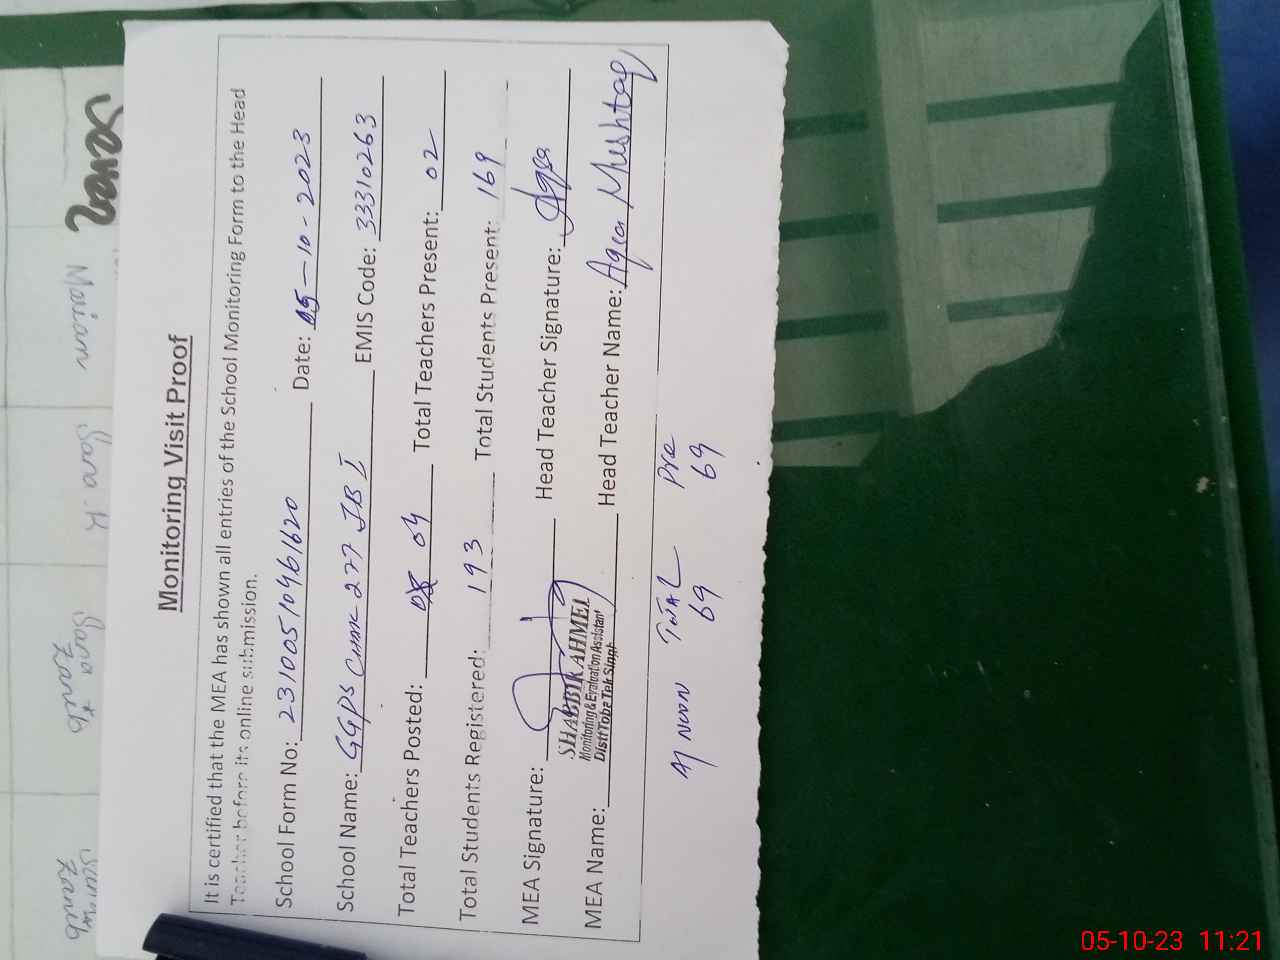 Monitoring Visit Proof
It is certified that the MEA has shown all entries of the School Monitoring Form to the Head
Teacher before its online submission.
School Form No: 23100510461620 Date: 05-10-2023
School Name: GGPS Chak 277 JB I EMIS Code: 33310263
Total Teachers Posted: 04 Total Teachers Present: 02
Total Students Registered: 193 Total Students Present: 169
MEA Signature: Head Teacher Signature: Aqsa
SHABBIR AHMED
Monitoring & Evaluation Assistant
Distt Toba Tek Singh
MEA Name: Head Teacher Name: Aqsa Mushtaq
NOON TOTAL Pre
69 69
Seven
Mariam
Sana
Zaneb
Zaneb
05-10-23 11:21